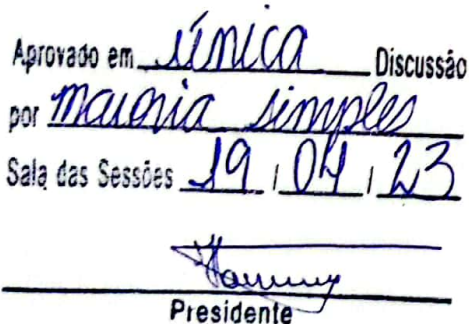 Aprovado em única Discussão
por maioria simples
Sala das Sessões 19 / 04 / 23
Presidente